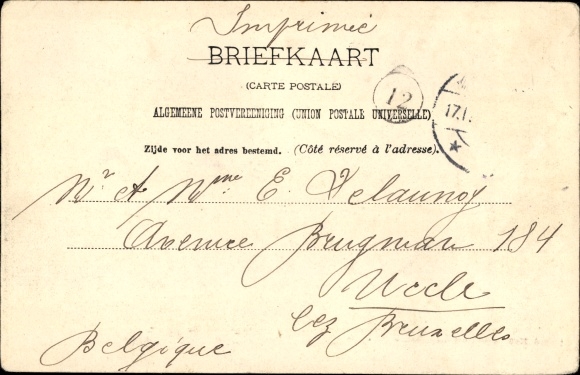 Imprimée
BRIEFKAART
(CARTE POSTALE)
ALGEMEENE POSTVEREENIGING (UNION POSTALE UNIVERSELLE)
12
17.1
Zijde voor het adres bestemd. (Côté réservé à l'adresse).
Mr et Mme E. Delaunoy
Avenue Brugman 184
Uccle
lez Bruxelles
Belgique